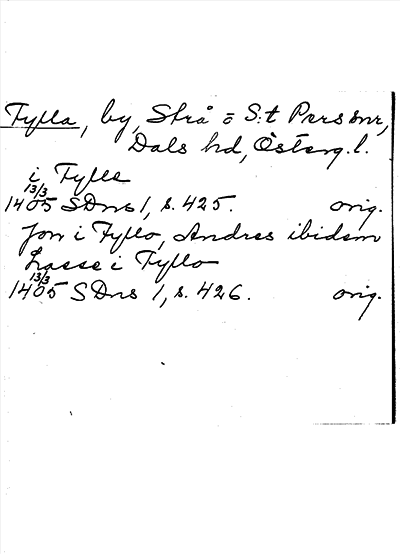 Fylla, by, Strå = S:t Pers snr,
Dals hd, Österg.l.
i Fylle
1405 13/3 SDns 1, s. 425. orig.
Jon i Fyllo, Andres ibidem
Lasse i Fyllo
1405 13/3 SDns 1, s. 426. orig.